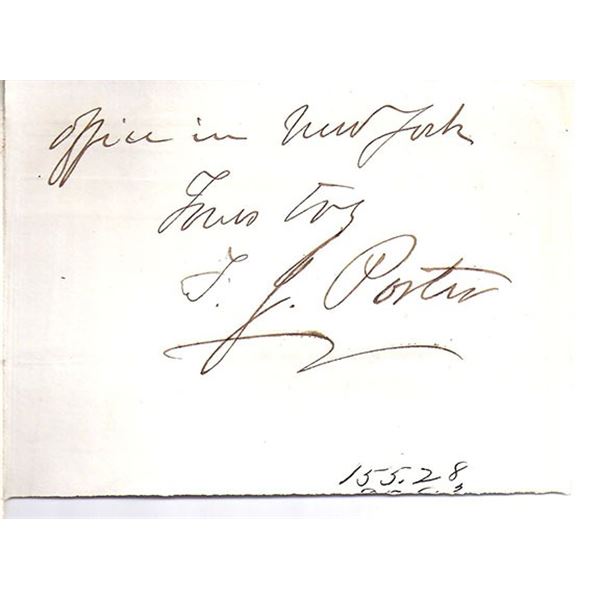 office in New York
Yours Try
F. J. Porter
155.28